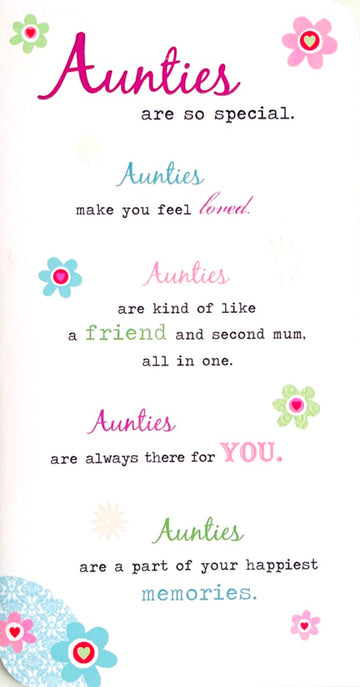 Aunties
are so special.
Aunties
make you feel loved.
Aunties
are kind of like
a friend and second mum,
all in one.
Aunties
are always there for YOU.
Aunties
are a part of your happiest
memories.